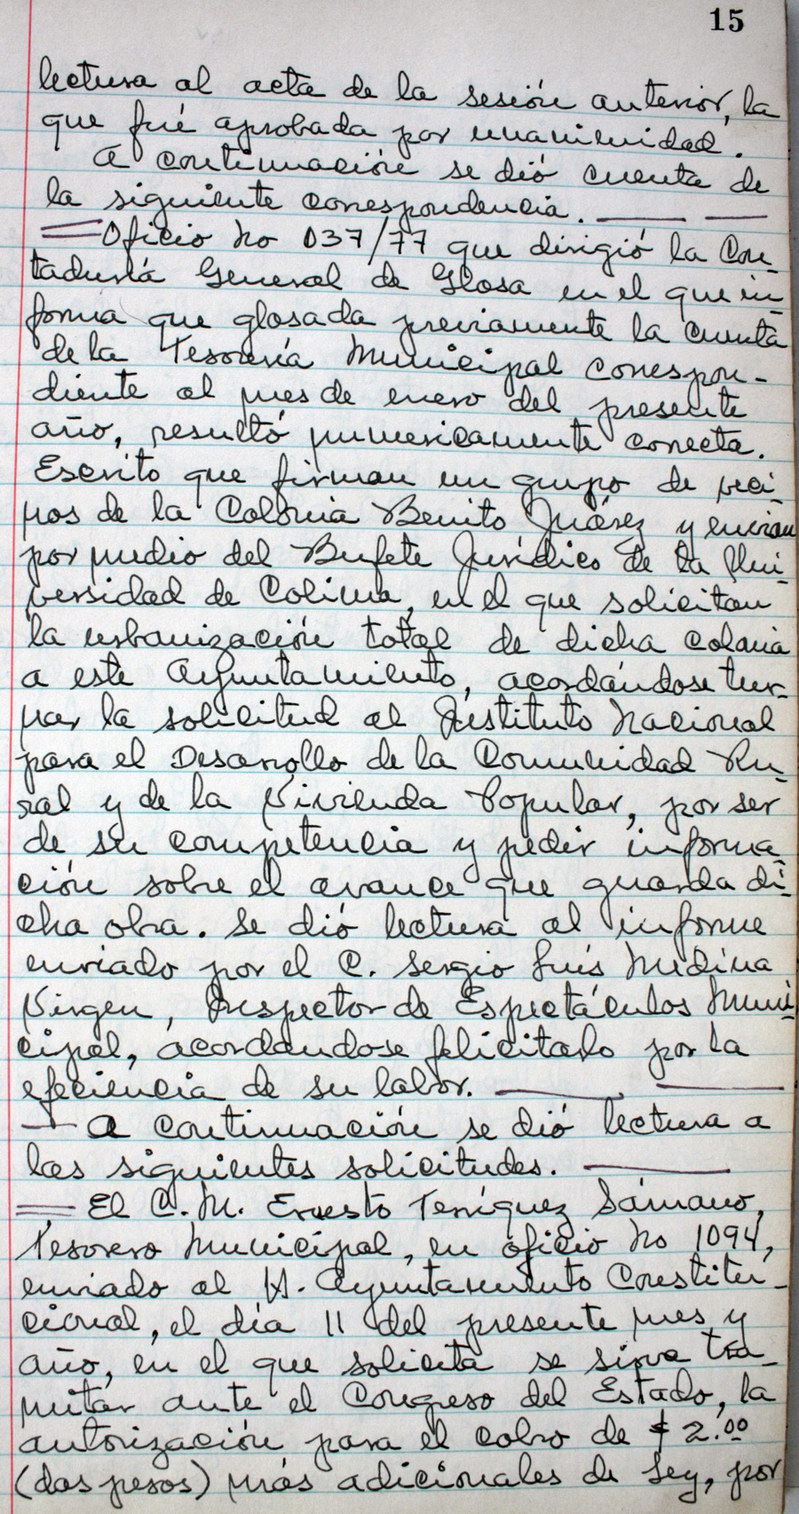 15
lectura al acta de la sesión anterior, la
que fué aprobada por unanimidad.
A continuación se dió cuenta de
la siguiente correspondencia.
Oficio No 037/77 que dirigió la Con-
taduría General de Glosa en el que in-
forma que glosada previamente la cuenta
de la Tesorería Municipal correspon-
diente al mes de enero del presente
año, resultó numericamente correcta.
Escrito que firman un grupo de veci-
nos de la Colonia Benito Juárez y envian
por medio del Bufete Jurídico de la Uni-
versidad de Colima, en el que solicitan
la urbanización total de dicha colonia
a este Ayuntamiento, acordándose tur-
nar la solicitud al Instituto Nacional
para el Desarrollo de la Comunidad Ru-
ral y de la Vivienda Popular, por ser
de su competencia y pedir informa-
ción sobre el avance que guarda di-
cha obra. Se dió lectura al informe
enviado por el C. Sergio Luís Medina
Virgen, Inspector de Espectáculos Muni-
cipal, acordandose felicitarlo por la
efeciencia de su labor.
A continuación se dió lectura a
las siguientes solicitudes.
El C. M. Ernesto Terríquez Sámano,
Tesorero Municipal, en oficio No 1094,
enviado al H. Ayuntamiento Constitu-
cional, el día 11 del presente mes y
año, en el que solicita se sirva tra-
mitar ante el Congreso del Estado, la
autorización para el cobro de $ 2.00
(dos pesos) más adicionales de Ley, por